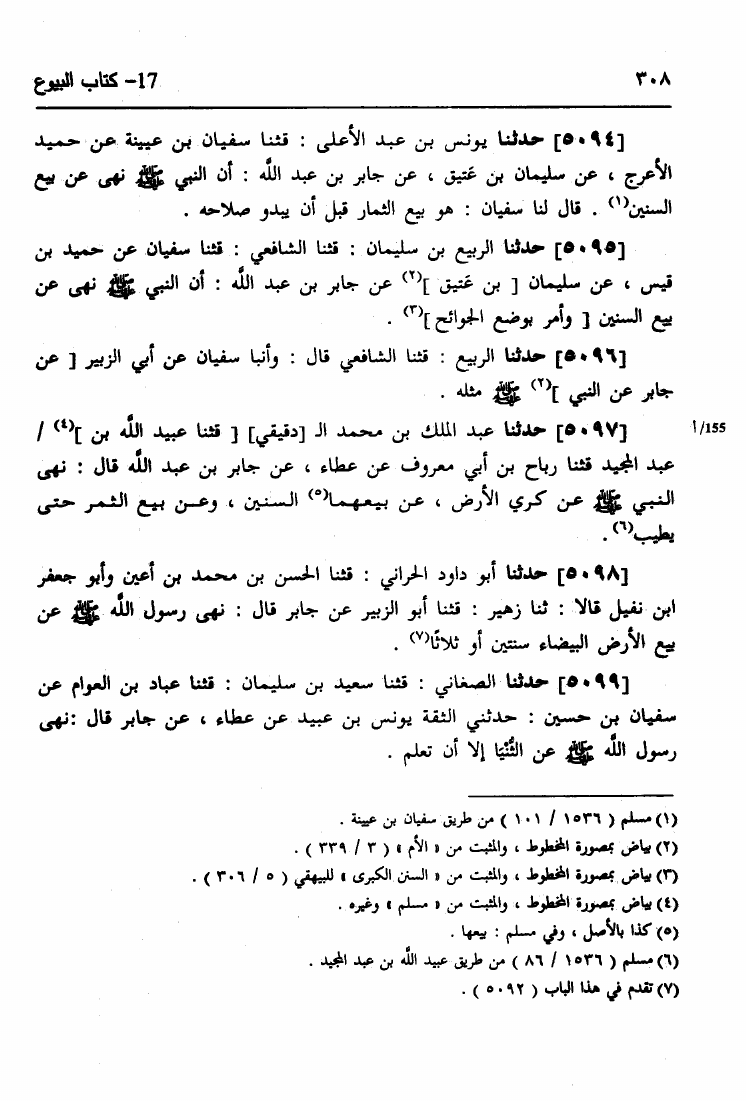 ٣٠٨ 17- كتاب البيوع
[٥٠٩٤] حدثنا يونس بن عبد الأعلى : قثنا سفيان بن عيينة عن حميد
الأعرج ، عن سليمان بن عَتيق ، عن جابر بن عبد اللَّه : أن النبي ﷺ نهى عن بيع
السنين(١) . قال لنا سفيان : هو بيع الثمار قبل أن يبدو صلاحه .
[٥٠٩٥] حدثنا الربيع بن سليمان : قثنا الشافعي : قثنا سفيان عن حميد بن
قيس ، عن سليمان [ بن عَتيق ](٢) عن جابر بن عبد اللَّه : أن النبي ﷺ نهى عن
بيع السنين [ وأمر بوضع الجوائح](٣) .
[٥٠٩٦] حدثنا الربيع : قثنا الشافعي قال : وأنبا سفيان عن أبي الزبير [ عن
جابر عن النبي ](٢) ﷺ مثله .
[٥٠٩٧] حدثنا عبد الملك بن محمد الـ [دقيقي] [ قثنا عبيد اللَّه بن ](٤) / ١٥٥/أ
عبد المجيد قثنا رباح بن أبي معروف عن عطاء ، عن جابر بن عبد اللَّه قال : نهى
النبي ﷺ عن كري الأرض ، عن بيعهما(٥) السنين ، وعن بيع الثمر حتى
يطيب(٦).
[٥٠٩٨] حدثنا أبو داود الحراني : قثنا الحسن بن محمد بن أعين وأبو جعفر
ابن نفيل قالا : ثنا زهير : قثنا أبو الزبير عن جابر قال : نهى رسول اللَّه ﷺ عن
بيع الأرض البيضاء سنتين أو ثلاثًا(٧) .
[٥٠٩٩] حدثنا الصغاني : قثنا سعيد بن سليمان : قثنا عباد بن العوام عن
سفيان بن حسين : حدثني الثقة يونس بن عبيد عن عطاء ، عن جابر قال :نهى
رسول اللَّه ﷺ عن الثُّنْيَا إلا أن تعلم .
(١) مسلم ( ١٥٣٦ / ١٠١ ) من طريق سفيان بن عيينة .
(٢) بياض بمصورة المخطوط ، والمثبت من « الأم » ( ٣ / ٣٣٩ ) .
(٣) بياض بمصورة المخطوط ، والمثبت من « السنن الكبرى » للبيهقي ( ٥ / ٣٠٦ ) .
(٤) بياض بمصورة المخطوط ، والمثبت من « مسلم » وغيره .
(٥) كذا بالأصل ، وفي مسلم : بيعها .
(٦) مسلم ( ١٥٣٦ / ٨٦ ) من طريق عبيد اللَّه بن عبد المجيد .
(٧) تقدم في هذا الباب ( ٥٠٩٢ ) .